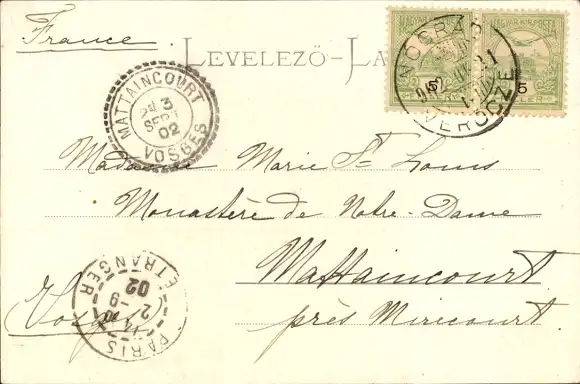 France
LEVELEZŐ-LA
MAGYAR KIR. POSTA
MAGYAR KIR. POSTA
5
5
FILLÉR
NÓGRÁD
VERŐCZE
MATTAINCOURT
3
SEPT
02
VOSGES
Madame Marie St Louis
Monastère de Notre-Dame
Mattaincourt
près Mirecourt.
Vosges
PARIS
ETRANGER
2-9
02